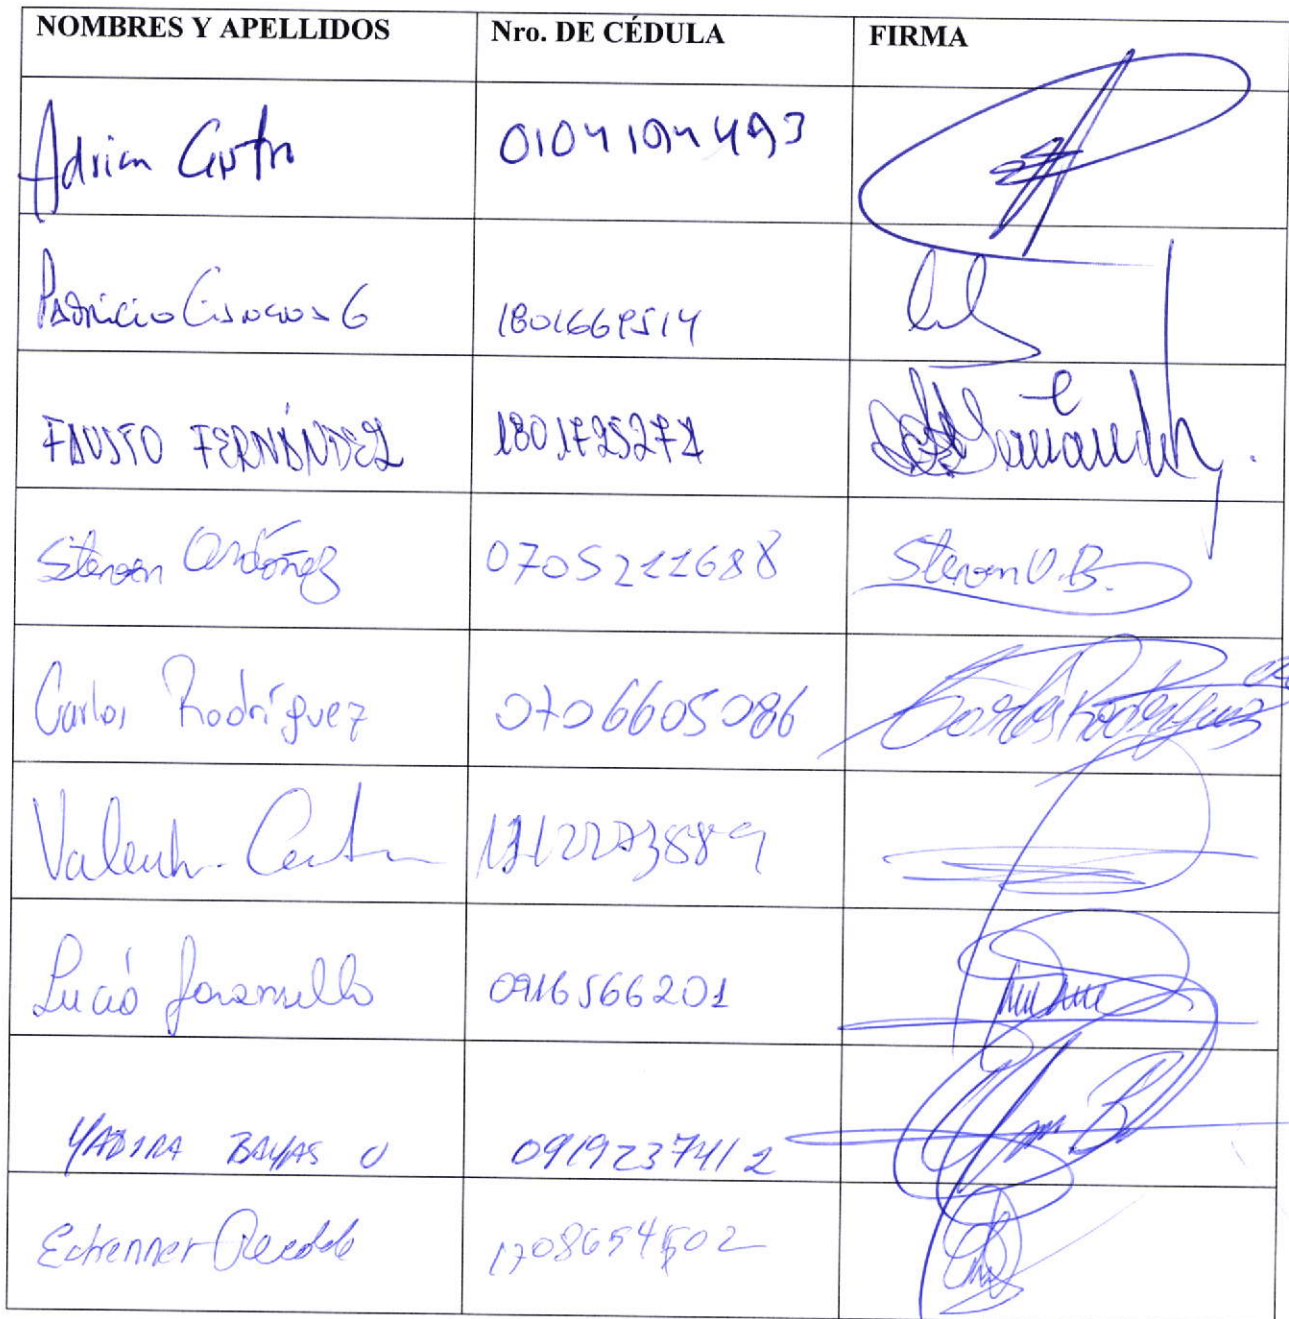 NOMBRES Y APELLIDOS Nro. DE CÉDULA FIRMA
Adrian Castro 0104194493
Patricio Cisneros G 1801669514
FAUSTO FERNÁNDEZ 1801725272 Fernandez
Steven Ordóñez 0705211688 Steven O.B.
Carlos Rodríguez 0706605086 Carlos Rodríguez
Valentin
Lucio Jaramillo 0916566201
YADIRA BAYAS U 0919237412
1708654502